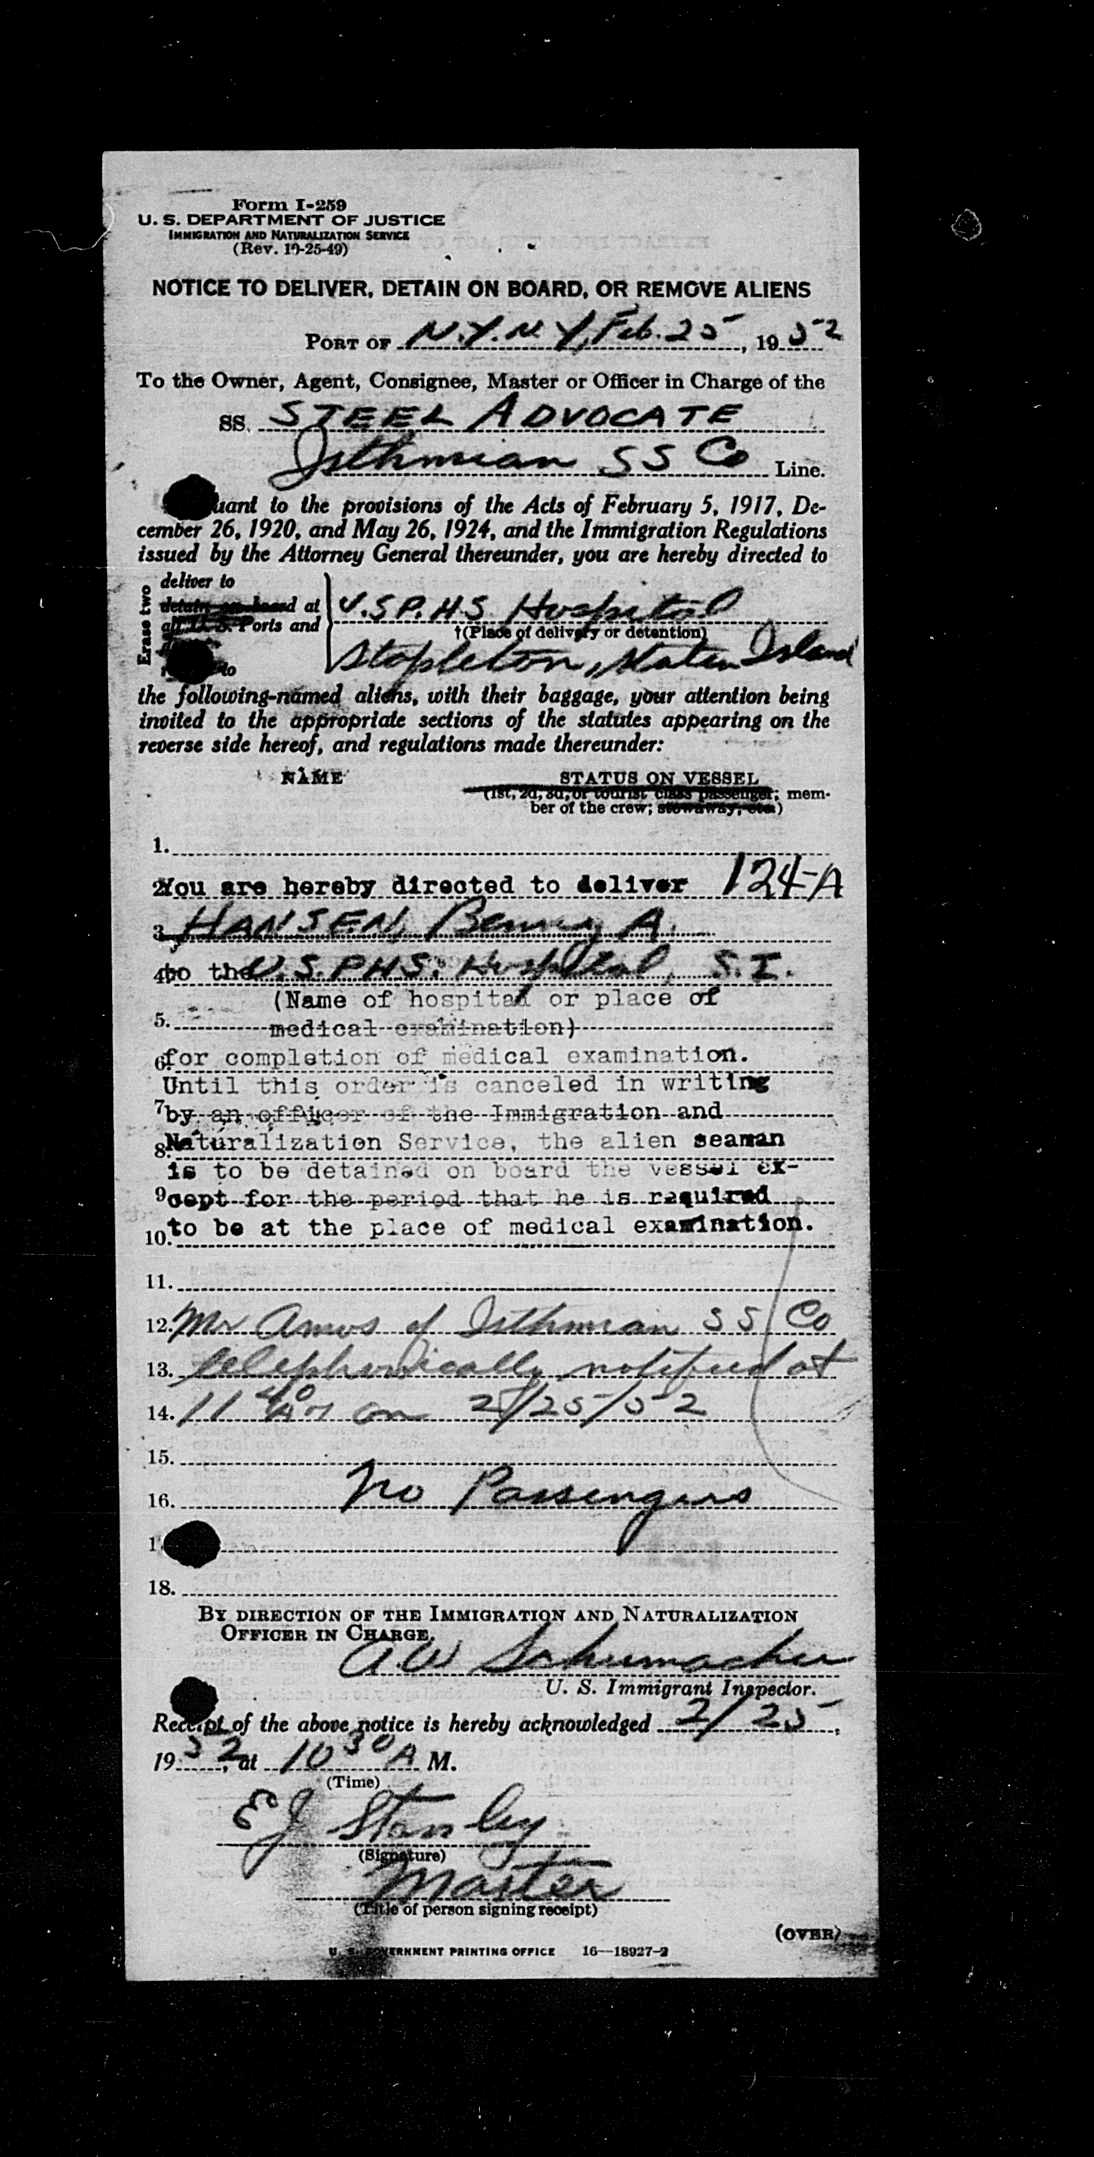 Form I-259
U. S. DEPARTMENT OF JUSTICE
IMMIGRATION AND NATURALIZATION SERVICE
(Rev. 10-25-49)
NOTICE TO DELIVER, DETAIN ON BOARD, OR REMOVE ALIENS
PORT OF N.Y. N.Y, Feb. 25, 1952
To the Owner, Agent, Consignee, Master or Officer in Charge of the
SS. STEEL ADVOCATE
Isthmian SS Co Line.
uant to the provisions of the Acts of February 5, 1917, De-
cember 26, 1920, and May 26, 1924, and the Immigration Regulations
issued by the Attorney General thereunder, you are hereby directed to
Erase two
deliver to
detain on board at
all U. S. Ports and
to
U.S.P.H.S Hospital
†(Place of delivery or detention)
Stapleton, Staten Island
the following-named aliens, with their baggage, your attention being
invited to the appropriate sections of the statutes appearing on the
reverse side hereof, and regulations made thereunder:
NAME STATUS ON VESSEL
(1st, 2d, 3d, or tourist class passenger; mem-
ber of the crew; stowaway, etc.)
1.
2. You are hereby directed to deliver 124-A
3. HANSEN, Benny A.
4. to the U.S.P.H.S. Hospital, S.I.
(Name of hospital or place of
5. medical examination)
6. for completion of medical examination.
Until this order is canceled in writing
7. by an officer of the Immigration and
8. Naturalization Service, the alien seaman
is to be detained on board the vessel ex-
9. cept for the period that he is required
10. to be at the place of medical examination.
11.
12. Mr Amos of Isthmian SS Co
13. telephonically notified at
14. 11 40 AM on 2/25/52
15.
16. No Passengers
1
18.
BY DIRECTION OF THE IMMIGRATION AND NATURALIZATION
OFFICER IN CHARGE.
A.W Schumacher
U. S. Immigrant Inspector.
Receipt of the above notice is hereby acknowledged 2/25,
1952, at 10 30 A M.
(Time)
E J Stanley
(Signature)
Master
(Title of person signing receipt)
(OVER)
U. S. GOVERNMENT PRINTING OFFICE 16—18927-2